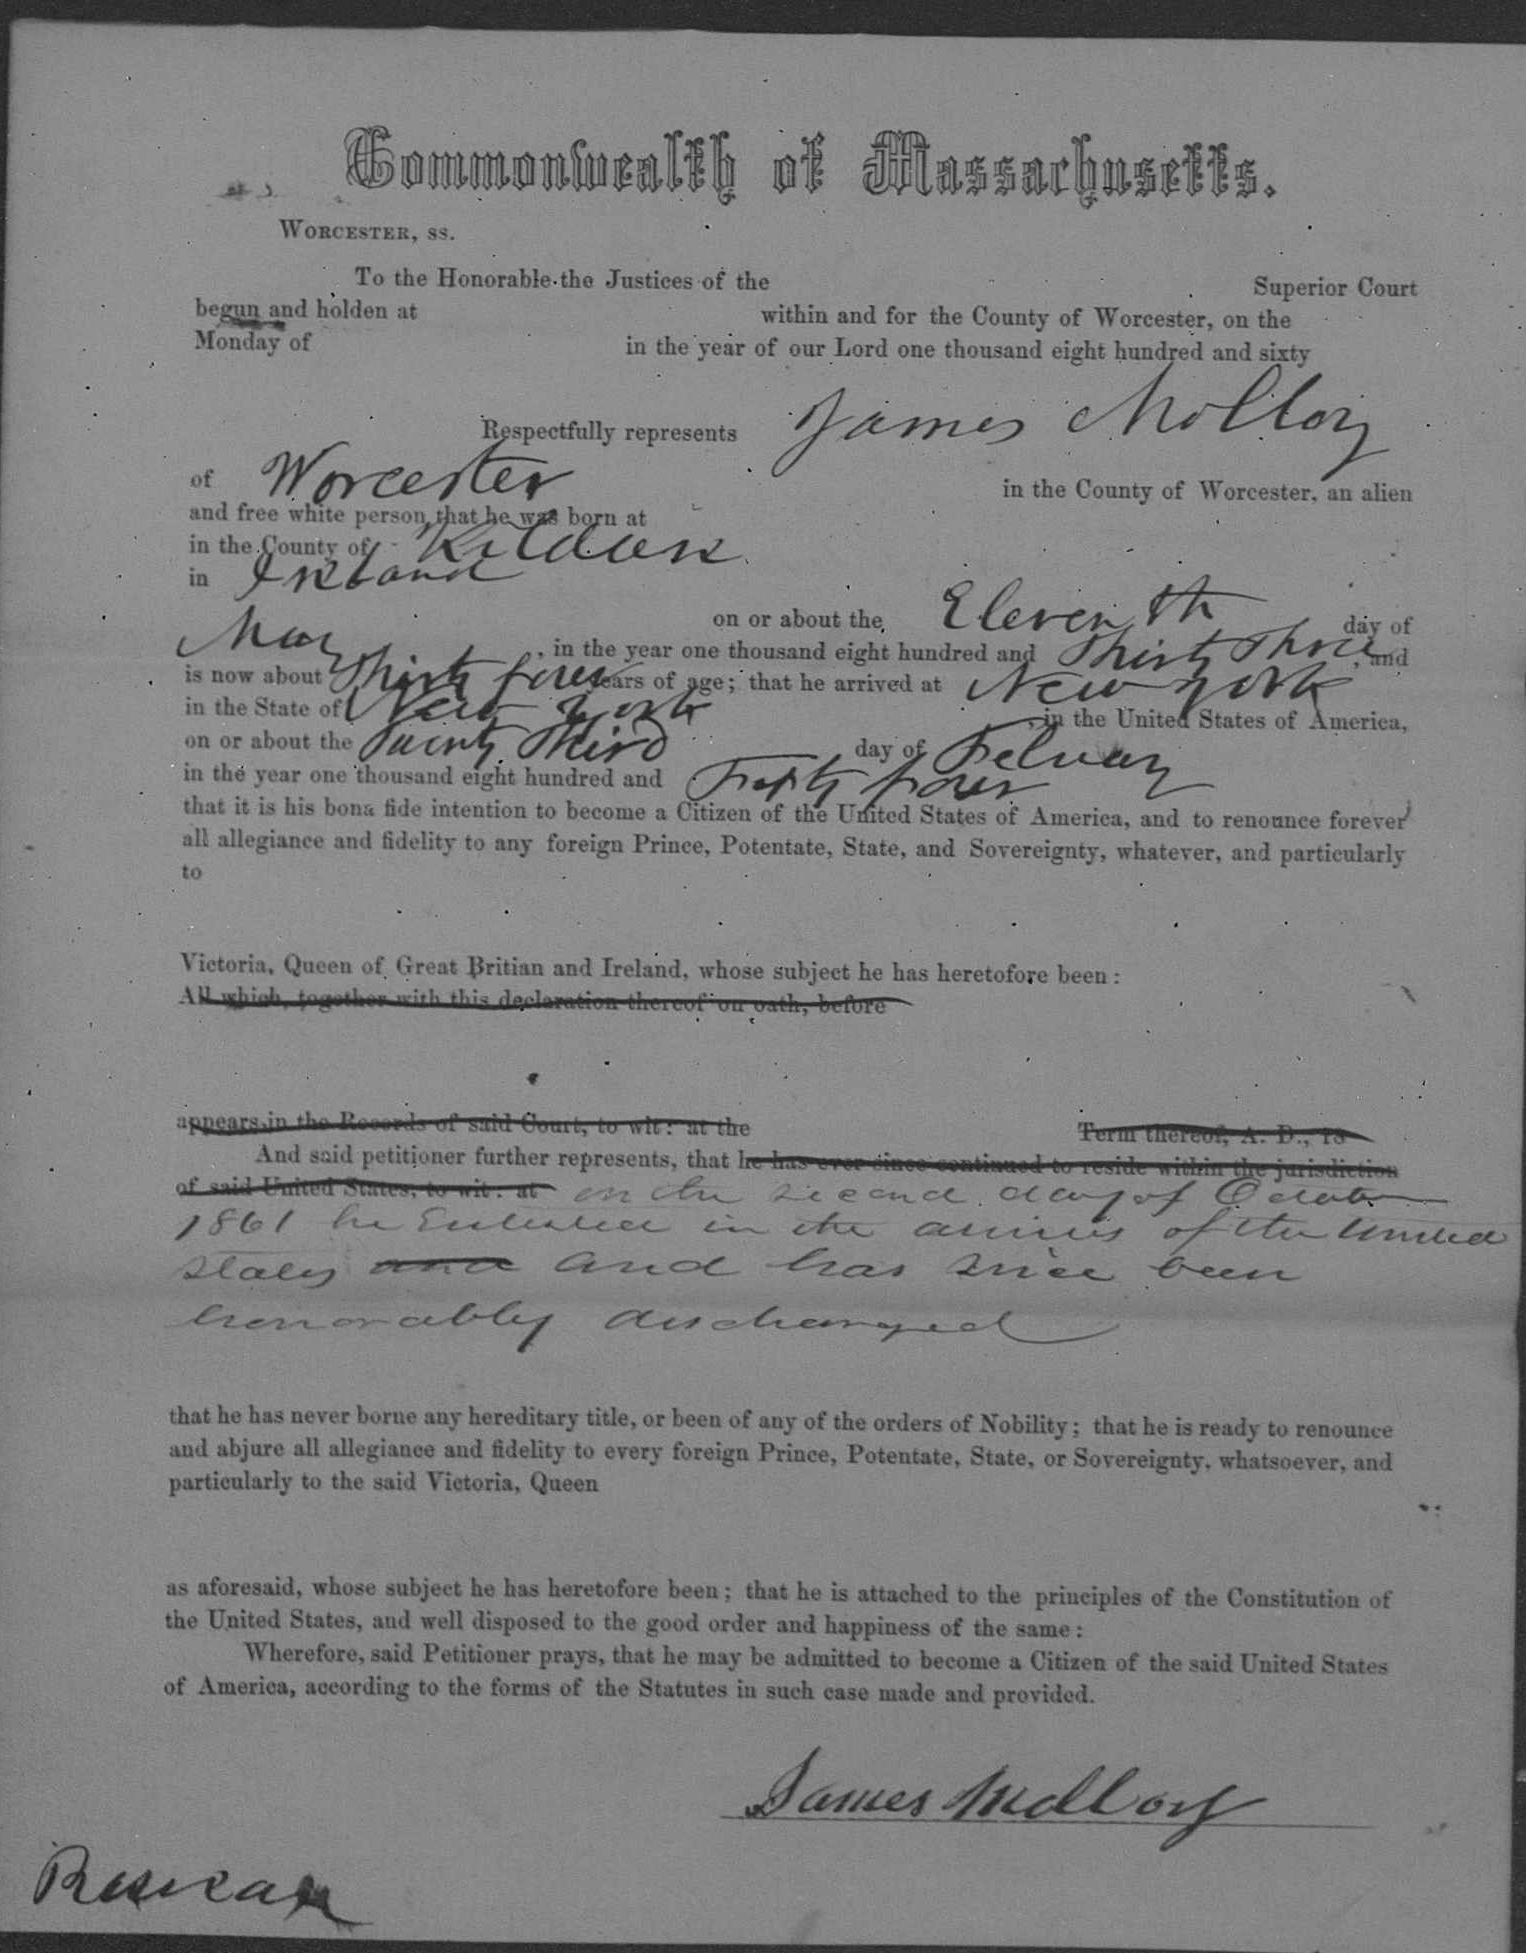 Commonwealth of Massachusetts.
WORCESTER, SS.
To the Honorable the Justices of the Superior Court
begun and holden at within and for the County of Worcester, on the
Monday of in the year of our Lord one thousand eight hundred and sixty
Respectfully represents James Molloy
of Worcester in the County of Worcester, an alien
and free white person, that he was born at
in the County of Kildare
in Ireland
on or about the Eleventh day of
May, in the year one thousand eight hundred and Thirty Three, and
is now about Thirty four years of age; that he arrived at New York
in the State of New York, in the United States of America,
on or about the Twenty Third day of Februay
in the year one thousand eight hundred and Fifty four
that it is his bona fide intention to become a Citizen of the United States of America, and to renounce forever
all allegiance and fidelity to any foreign Prince, Potentate, State, and Sovereignty, whatever, and particularly
to
Victoria, Queen of Great Britian and Ireland, whose subject he has heretofore been:
All which, together with this declaration thereof on oath, before
appears in the Records of said Court, to wit: at the Term thereof, A. D., 18
And said petitioner further represents, that he has ever since continued to reside within the jurisdiction
of said United States, to wit: at on the second day of October
1861 he Enlisted in the armies of the United
States and and has since been
honorably discharged
that he has never borne any hereditary title, or been of any of the orders of Nobility; that he is ready to renounce
and abjure all allegiance and fidelity to every foreign Prince, Potentate, State, or Sovereignty, whatsoever, and
particularly to the said Victoria, Queen
as aforesaid, whose subject he has heretofore been; that he is attached to the principles of the Constitution of
the United States, and well disposed to the good order and happiness of the same:
Wherefore, said Petitioner prays, that he may be admitted to become a Citizen of the said United States
of America, according to the forms of the Statutes in such case made and provided.
James Molloy